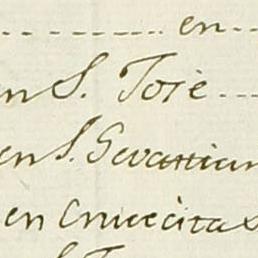 en
en S. Jose
en S. Sevastian
en Cruzecitas